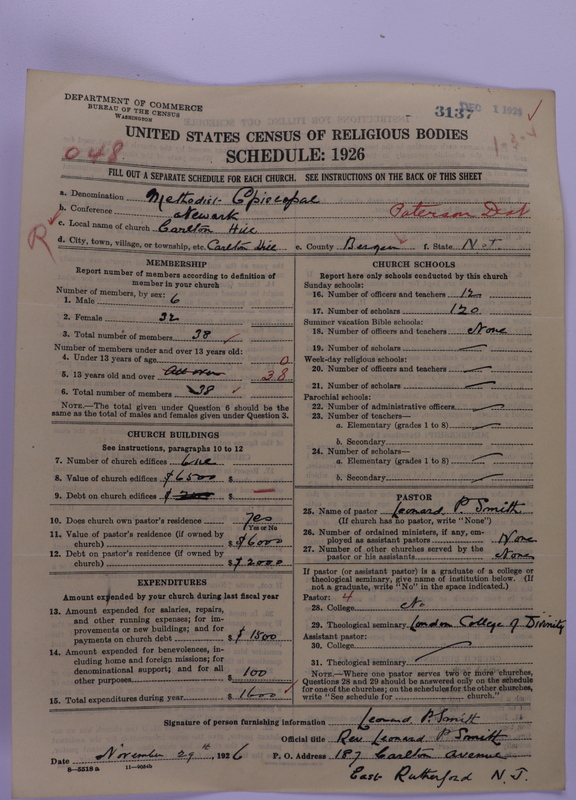 DEPARTMENT OF COMMERCE
BUREAU OF THE CENSUS
WASHINGTON
3137 DEC 1 1926
UNITED STATES CENSUS OF RELIGIOUS BODIES
048
SCHEDULE: 1926
1-3-4
FILL OUT A SEPARATE SCHEDULE FOR EACH CHURCH. SEE INSTRUCTIONS ON THE BACK OF THIS SHEET
a. Denomination Methodist Episcopal
b. Conference Newark Paterson Dist
R
c. Local name of church Carlton Hill
d. City, town, village, or township, etc. Carlton Hill e. County Bergen f. State N. J.
MEMBERSHIP
Report number of members according to definition of
member in your church
Number of members, by sex:
1. Male 6
2. Female 32
3. Total number of members 38
Number of members under and over 13 years old:
4. Under 13 years of age 0
5. 13 years old and over all over 38
6. Total number of members 38
NOTE.—The total given under Question 6 should be
same as the total of males and females given under Question 3.
CHURCH BUILDINGS
See instructions, paragraphs 10 to 12
7. Number of church edifices One
8. Value of church edifices $6500 $
9. Debt on church edifices $ $ —
10. Does church own pastor's residence yes
Yes or No
11. Value of pastor's residence (if owned by
church) $ $6000
12. Debt on pastor's residence (if owned by
church) $ $2000
EXPENDITURES
Amount expended by your church during last fiscal year
13. Amount expended for salaries, repairs,
and other running expenses; for im-
provements or new buildings; and for
payments on church debt $ $1500
14. Amount expended for benevolences, in-
cluding home and foreign missions; for
denominational support; and for all
other purposes $ 100
15. Total expenditures during year $ 1600
CHURCH SCHOOLS
Report here only schools conducted by this church
Sunday schools:
16. Number of officers and teachers 12
17. Number of scholars 120
Summer vacation Bible schools:
18. Number of officers and teachers None
19. Number of scholars
Week-day religious schools:
20. Number of officers and teachers
21. Number of scholars
Parochial schools:
22. Number of administrative officers
23. Number of teachers—
a. Elementary (grades 1 to 8)
b. Secondary
24. Number of scholars—
a. Elementary (grades 1 to 8)
b. Secondary
PASTOR
25. Name of pastor Leonard P. Smith
(If church has no pastor, write "None")
26. Number of ordained ministers, if any, em-
ployed as assistant pastors None
27. Number of other churches served by the
pastor or his assistants None
If pastor (or assistant pastor) is a graduate of a college or
theological seminary, give name of institution below. (If
not a graduate, write "No" in the space indicated.)
Pastor: 4
28. College No
29. Theological seminary London College of Divinity
Assistant pastor:
30. College
31. Theological seminary
NOTE.—Where one pastor serves two or more churches,
Questions 28 and 29 should be answered only on the schedule
for one of the churches; on the schedules for the other churches,
write "See schedule for church."
Signature of person furnishing information Leonard P. Smith
Official title Rev Leonard P Smith
Date November 29th, 1926 P. O. Address 187 Carlton Avenue
8-5518a 11-9084h East Rutherford N. J.